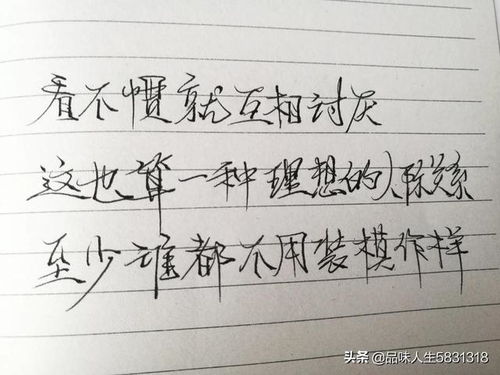 看不惯就互相讨厌
这也算一种理想的人际关系
至少谁都不用装模作样
头条 @品味人生5831318